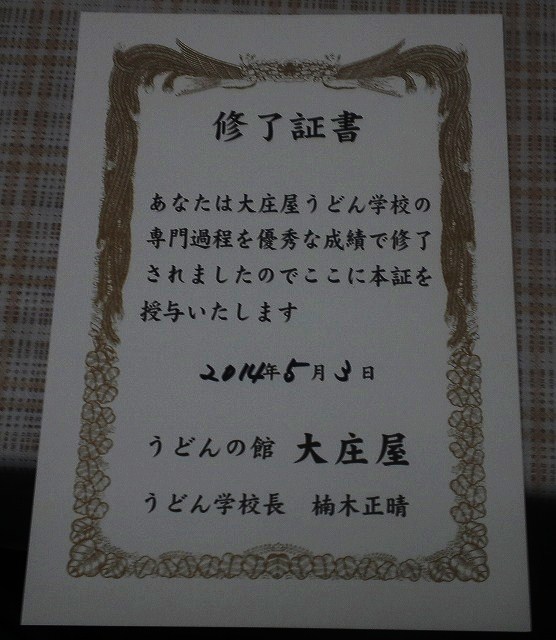 修了証書
あなたは大庄屋うどん学校の
専門過程を優秀な成績で修了
されましたのでここに本証を
授与いたします
2014年5月3日
うどんの館 大庄屋
うどん学校長 楠木正晴